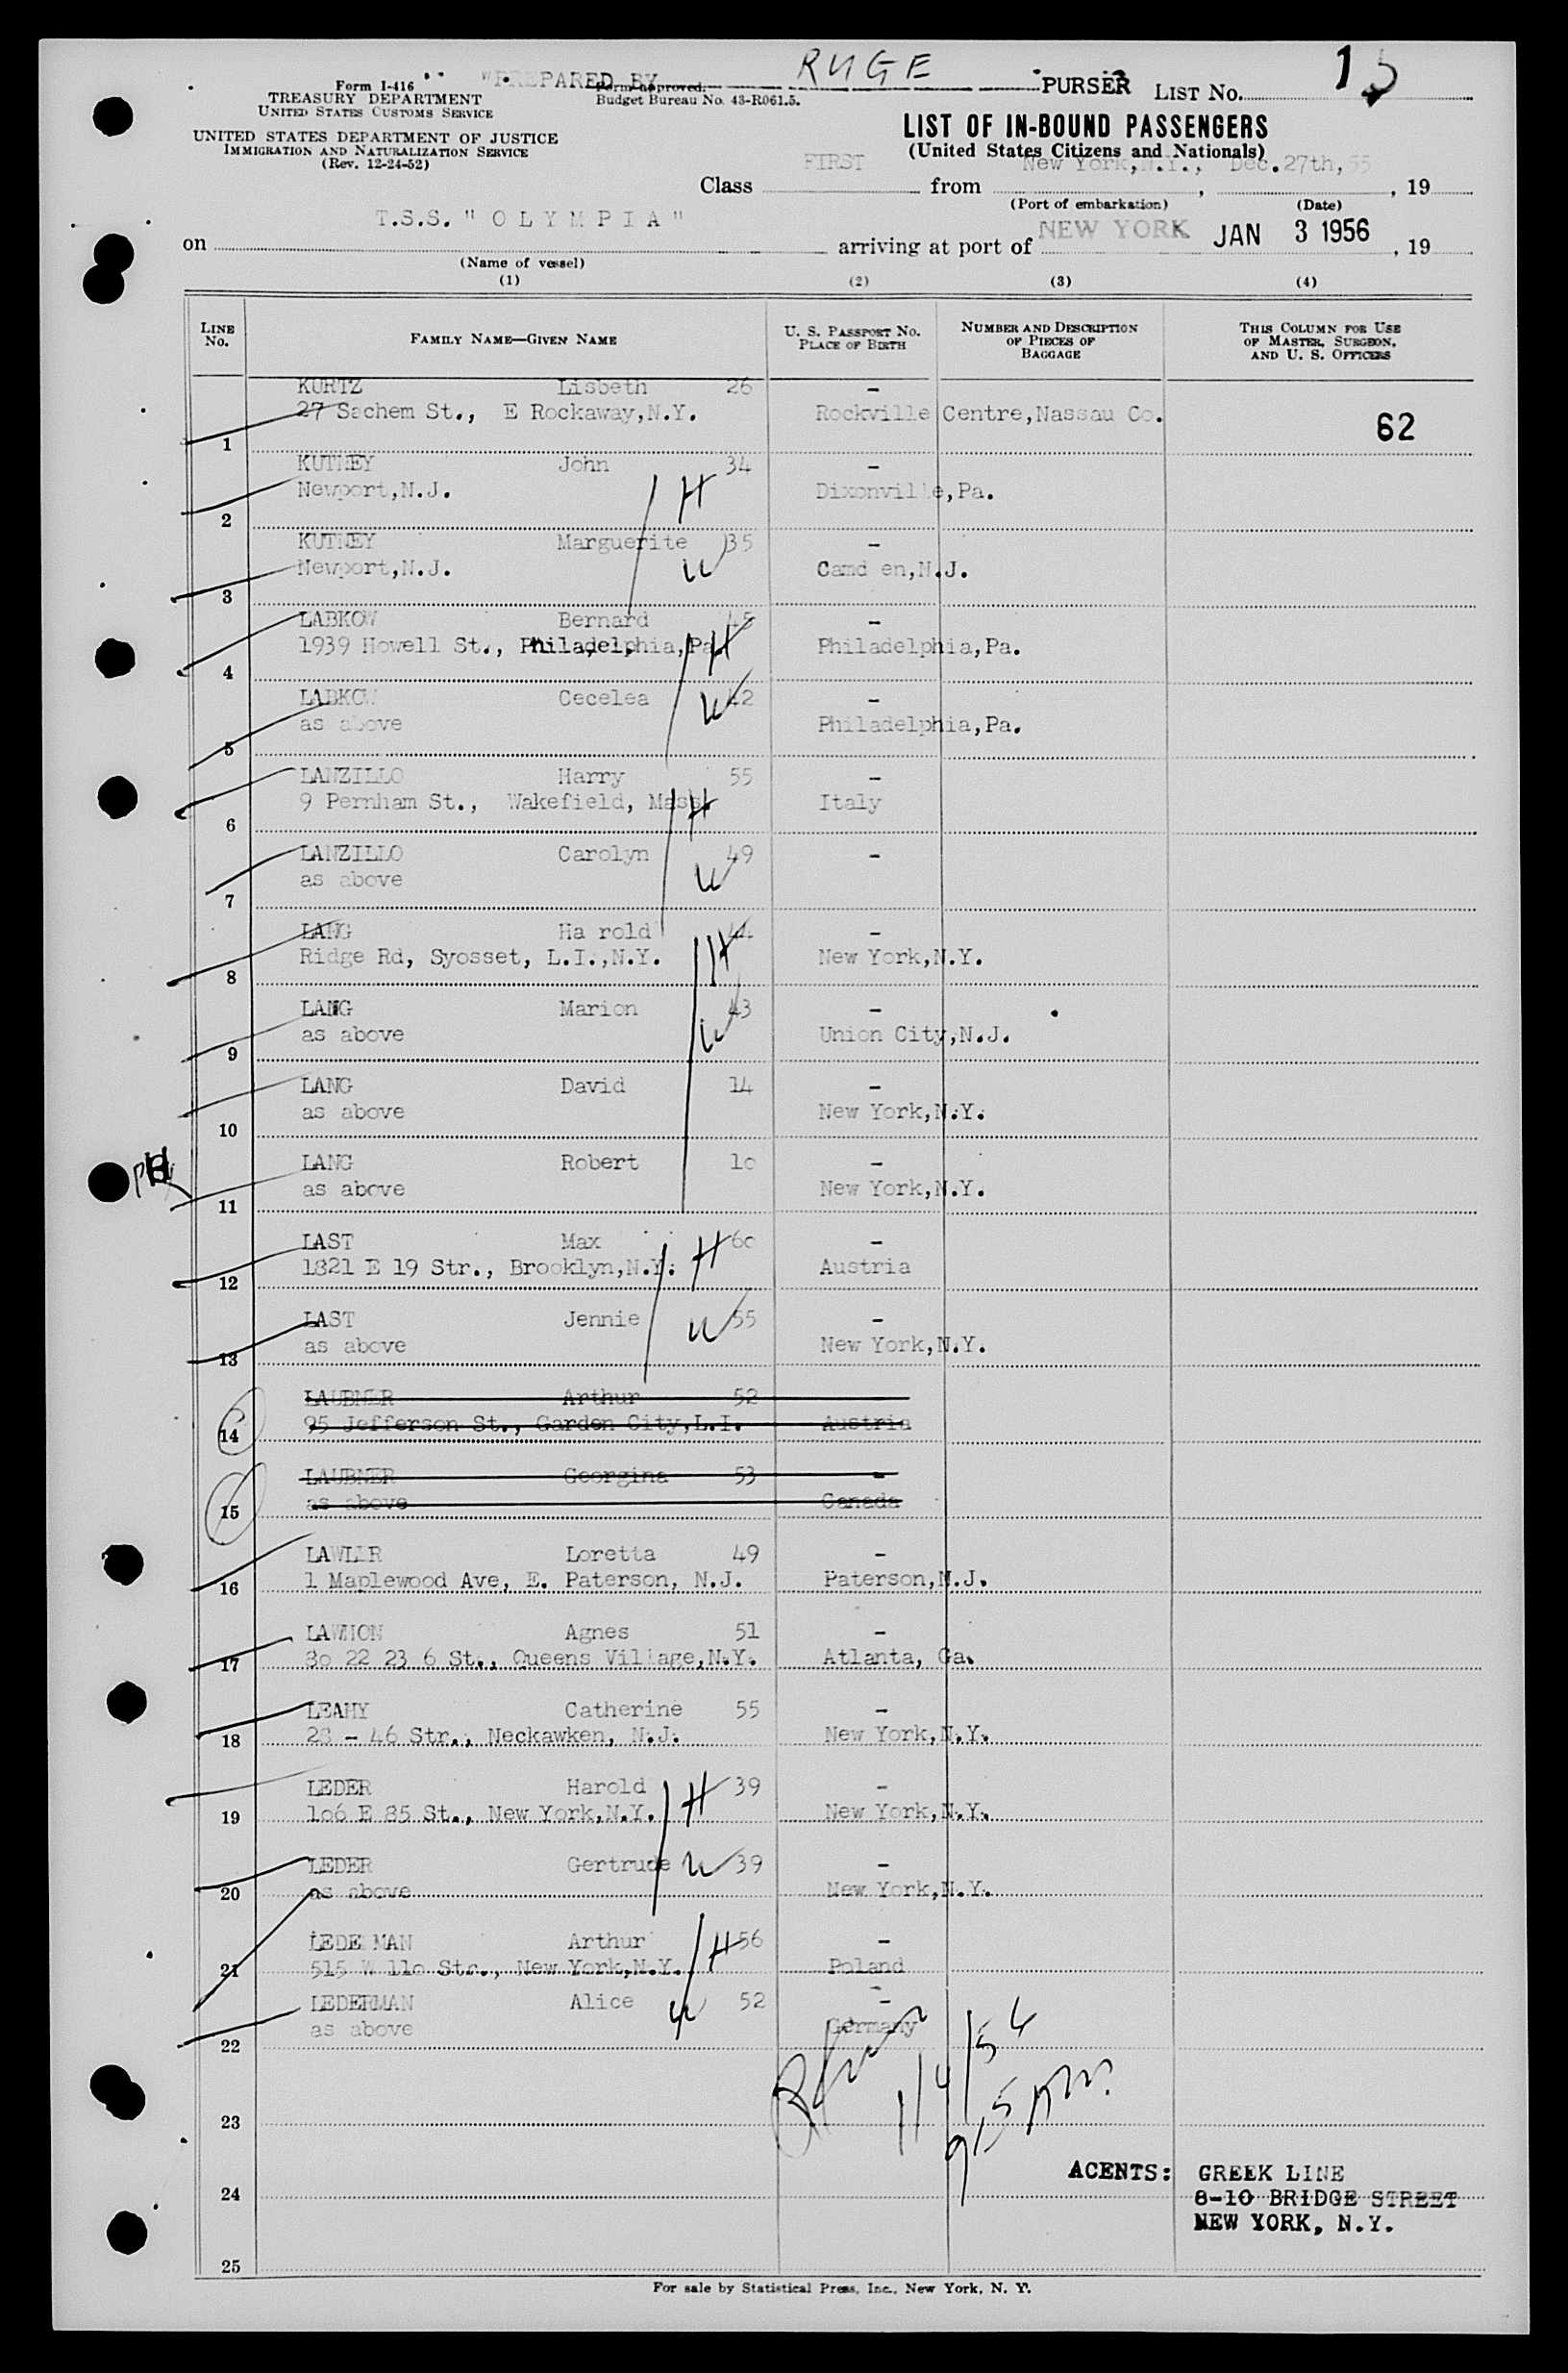 Form I-416
TREASURY DEPARTMENT
UNITED STATES CUSTOMS SERVICE
UNITED STATES DEPARTMENT OF JUSTICE
IMMIGRATION AND NATURALIZATION SERVICE
(Rev. 12-24-52)
"PREPARED BY RUGE PURSER
Form approved.
Budget Bureau No. 43-R061.5.
LIST No. 15
LIST OF IN-BOUND PASSENGERS
(United States Citizens and Nationals)
Class FIRST from New York,N.Y., Dec.27th,55, 19
(Port of embarkation) (Date)
on T.S.S. "OLYMPIA" arriving at port of NEW YORK JAN 3 1956, 19
(Name of vessel)
(1) (2) (3) (4)
LINE No. FAMILY NAME—GIVEN NAME U. S. PASSPORT NO. PLACE OF BIRTH NUMBER AND DESCRIPTION OF PIECES OF BAGGAGE THIS COLUMN FOR USE OF MASTER, SURGEON, AND U. S. OFFICERS
KURTZ Lisbeth 26 -
27 Sachem St., E Rockaway,N.Y. Rockville Centre,Nassau Co. 62
1
KUTNEY John 34 -
Newport,N.J. H Dixonville,Pa.
2
KUTNEY Marguerite 35 -
Newport,N.J. W Camd en,N.J.
3
LABKOW Bernard 45 -
1939 Howell St., Philadelphia,Pa. H Philadelphia,Pa.
4
LABKOW Cecelea W 42 -
as above Philadelphia,Pa.
5
LANZILLO Harry 55 -
9 Pernham St., Wakefield, Mass. H Italy
6
LANZILLO Carolyn 49 -
as above W
7
LANG Ha rold 44 -
Ridge Rd, Syosset, L.I.,N.Y. H New York,N.Y.
8
LANG Marion 43 -
as above W Union City,N.J.
9
LANG David 14 -
as above New York,N.Y.
10
LANG Robert 1o -
as above New York,N.Y.
11
LAST Max H 6o -
1821 E 19 Str., Brooklyn,N.Y. Austria
12
LAST Jennie W 55 -
as above New York,N.Y.
13
LAUBNER Arthur 52
95 Jefferson St., Garden City,L.I. Austria
14
LAUBNER Georgina 53 -
as above Canada
15
LAWLER Loretta 49 -
1 Maplewood Ave, E. Paterson, N.J. Paterson,N.J.
16
Agnes 51 -
3o 22 23 6 St., Queens Village,N.Y. Atlanta, Ga.
17
LEAHY Catherine 55 -
28 - 46 Str., Neckawken, N.J. New York,N.Y.
18
LEDER Harold H 39 -
1o6 E 85 St., New York,N.Y. New York,N.Y.
19
LEDER Gertrude W 39 -
as above New York,N.Y.
20
LEDE MAN Arthur H 56 -
515 W 11o Str., New York,N.Y. Poland
21
LEDERMAN Alice W 52 -
as above Germany
22
1/4/56
915 AM
23
24
25
AGENTS: GREEK LINE
8-10 BRIDGE STREET
NEW YORK, N.Y.
For sale by Statistical Press, Inc., New York, N. Y.